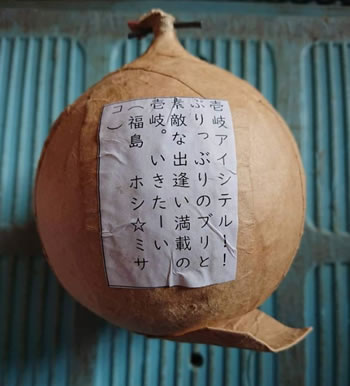 壱岐アイシテル！！
ぷりっぷりのブリと
素敵な出逢い満載の
壱岐。いきたーい
（福島　ホシ☆ミサ
コ）